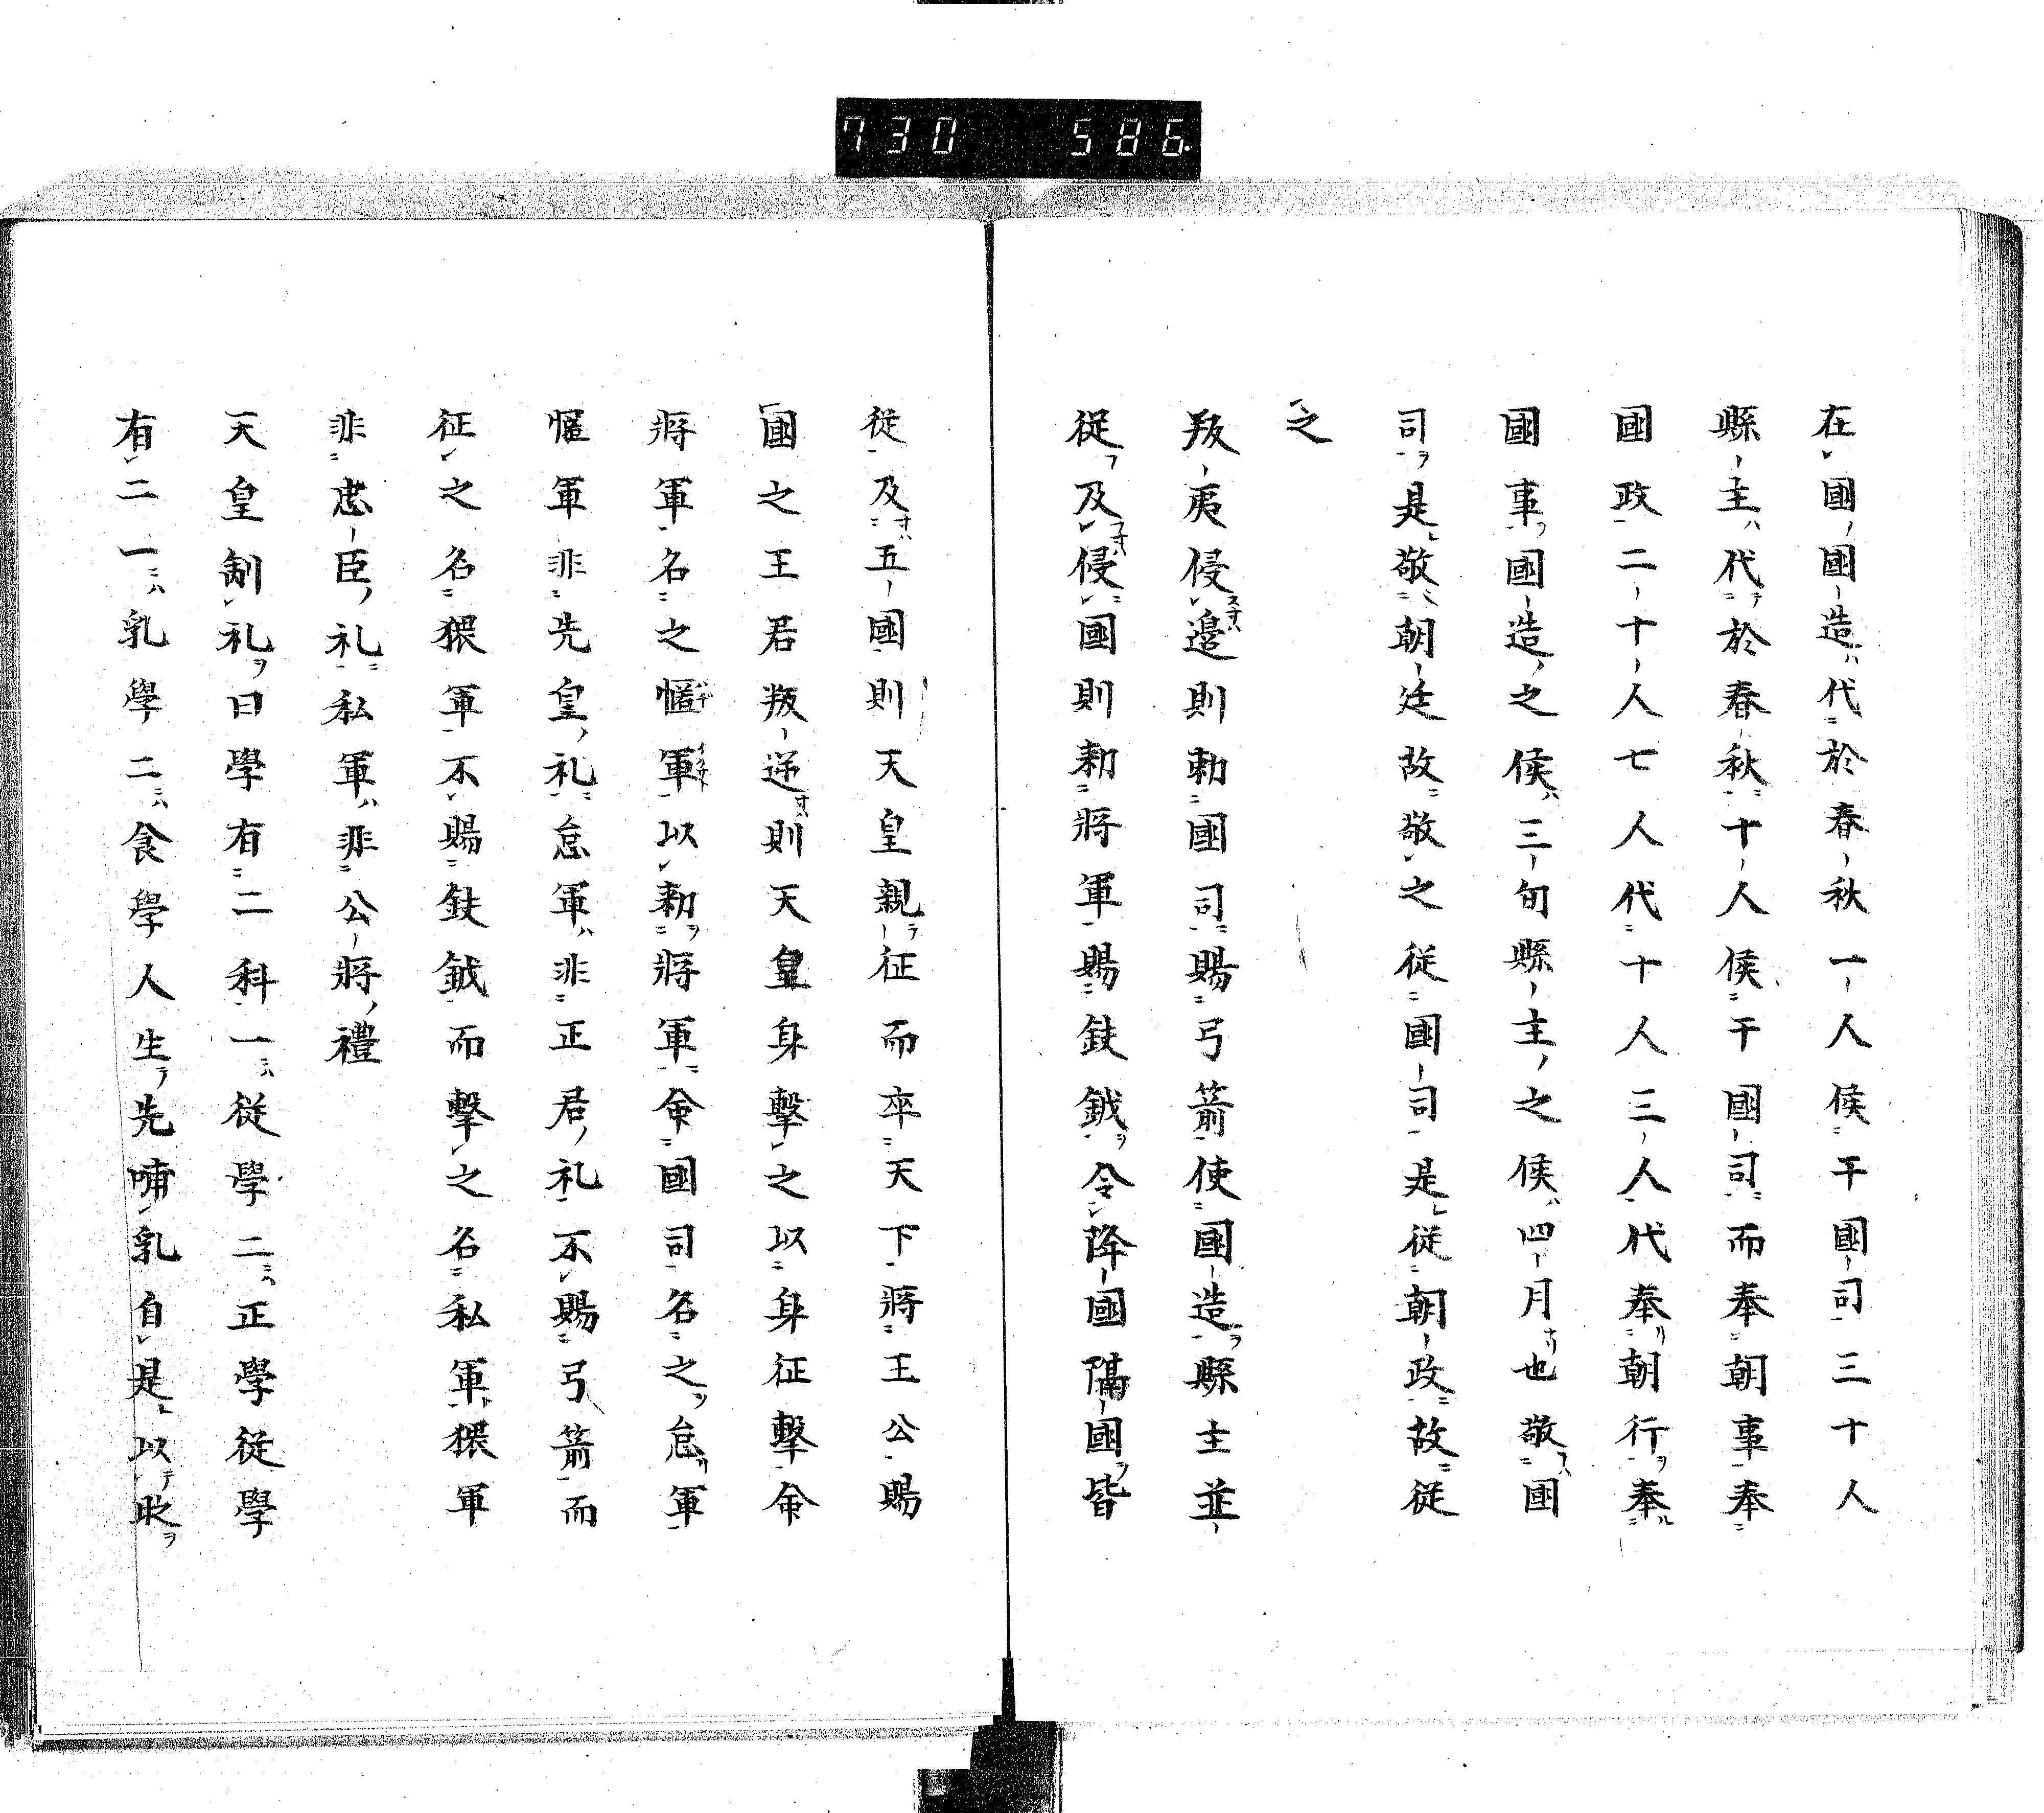 730 586
在國國造代於春秋一人候干國司三十人
縣主代於春秋十人候干國司而奉朝事奉
國政二十人七人代十人三人代奉朝行奉
國事國造之候三旬縣主之候四月也敬國
司是敬朝廷故敬之從國司是從朝政故從
之
叛夷侵邊則勅國司賜弓箭使國造縣主並
從及侵國則勅將軍賜鈇鉞令降國隣國皆
從及五國則天皇親征而卒天下將王公賜
國之王君叛逆則天皇身擊之以身征擊命
將軍名之慍軍以勅將軍命國司名之怠軍
慍軍非先皇礼怠軍非正君礼不賜弓箭而
征之名猥軍不賜鈇鉞而擊之名私軍猥軍
非忠臣礼私軍非公將禮
天皇制礼曰學有二科一從學二正學從學
有二一乳學二食學人生先哺乳自是以